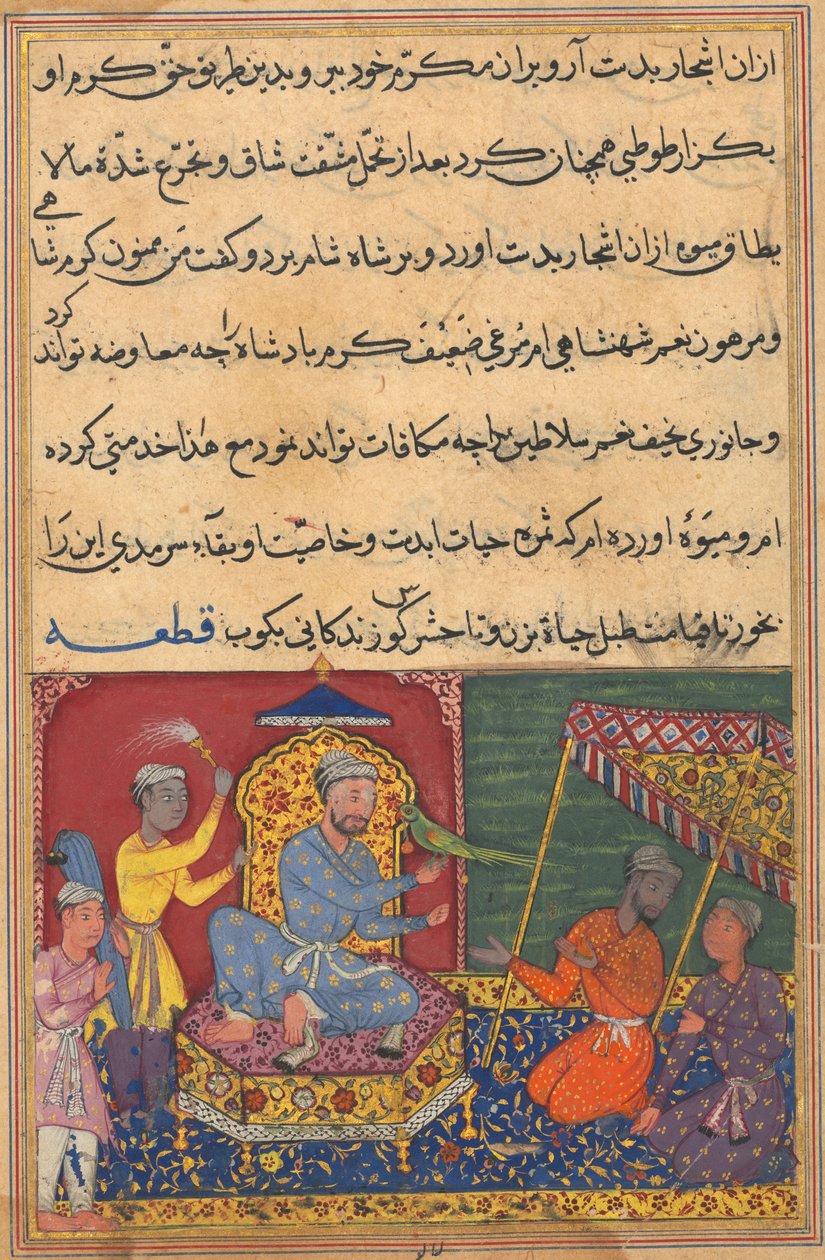 ازان اشجار بدست آر و بران مکرّم خود ببر و بدین طریق حقّ کرم او
بکزار طوطی همچنان کرد بعد از تحمّل مشّقت شاق و تجرّع شدّة مالا
یطاق میوه ازان اشجار بدست اورد و بر شاه شام برد و کفت مَن ممنون کرم شاهی
و مرهون نعم شهنشاهی ام مُرغی ضَعیْفَ کرم بادشاه را چه معاوضه تواند کرد
و جانوری نحیف نعم سلاطین را چه مکافات تواند نمود مع هٰذا خدمتی کرده
ام و میوَهٔ اورده ام که ثمره حیات ابدست و خاصیّت او بقآء سرمدی این رَا
بخور تا قیامت طبل حیاة بزن و تا حشر کوس زندکانی بکوب قطعه